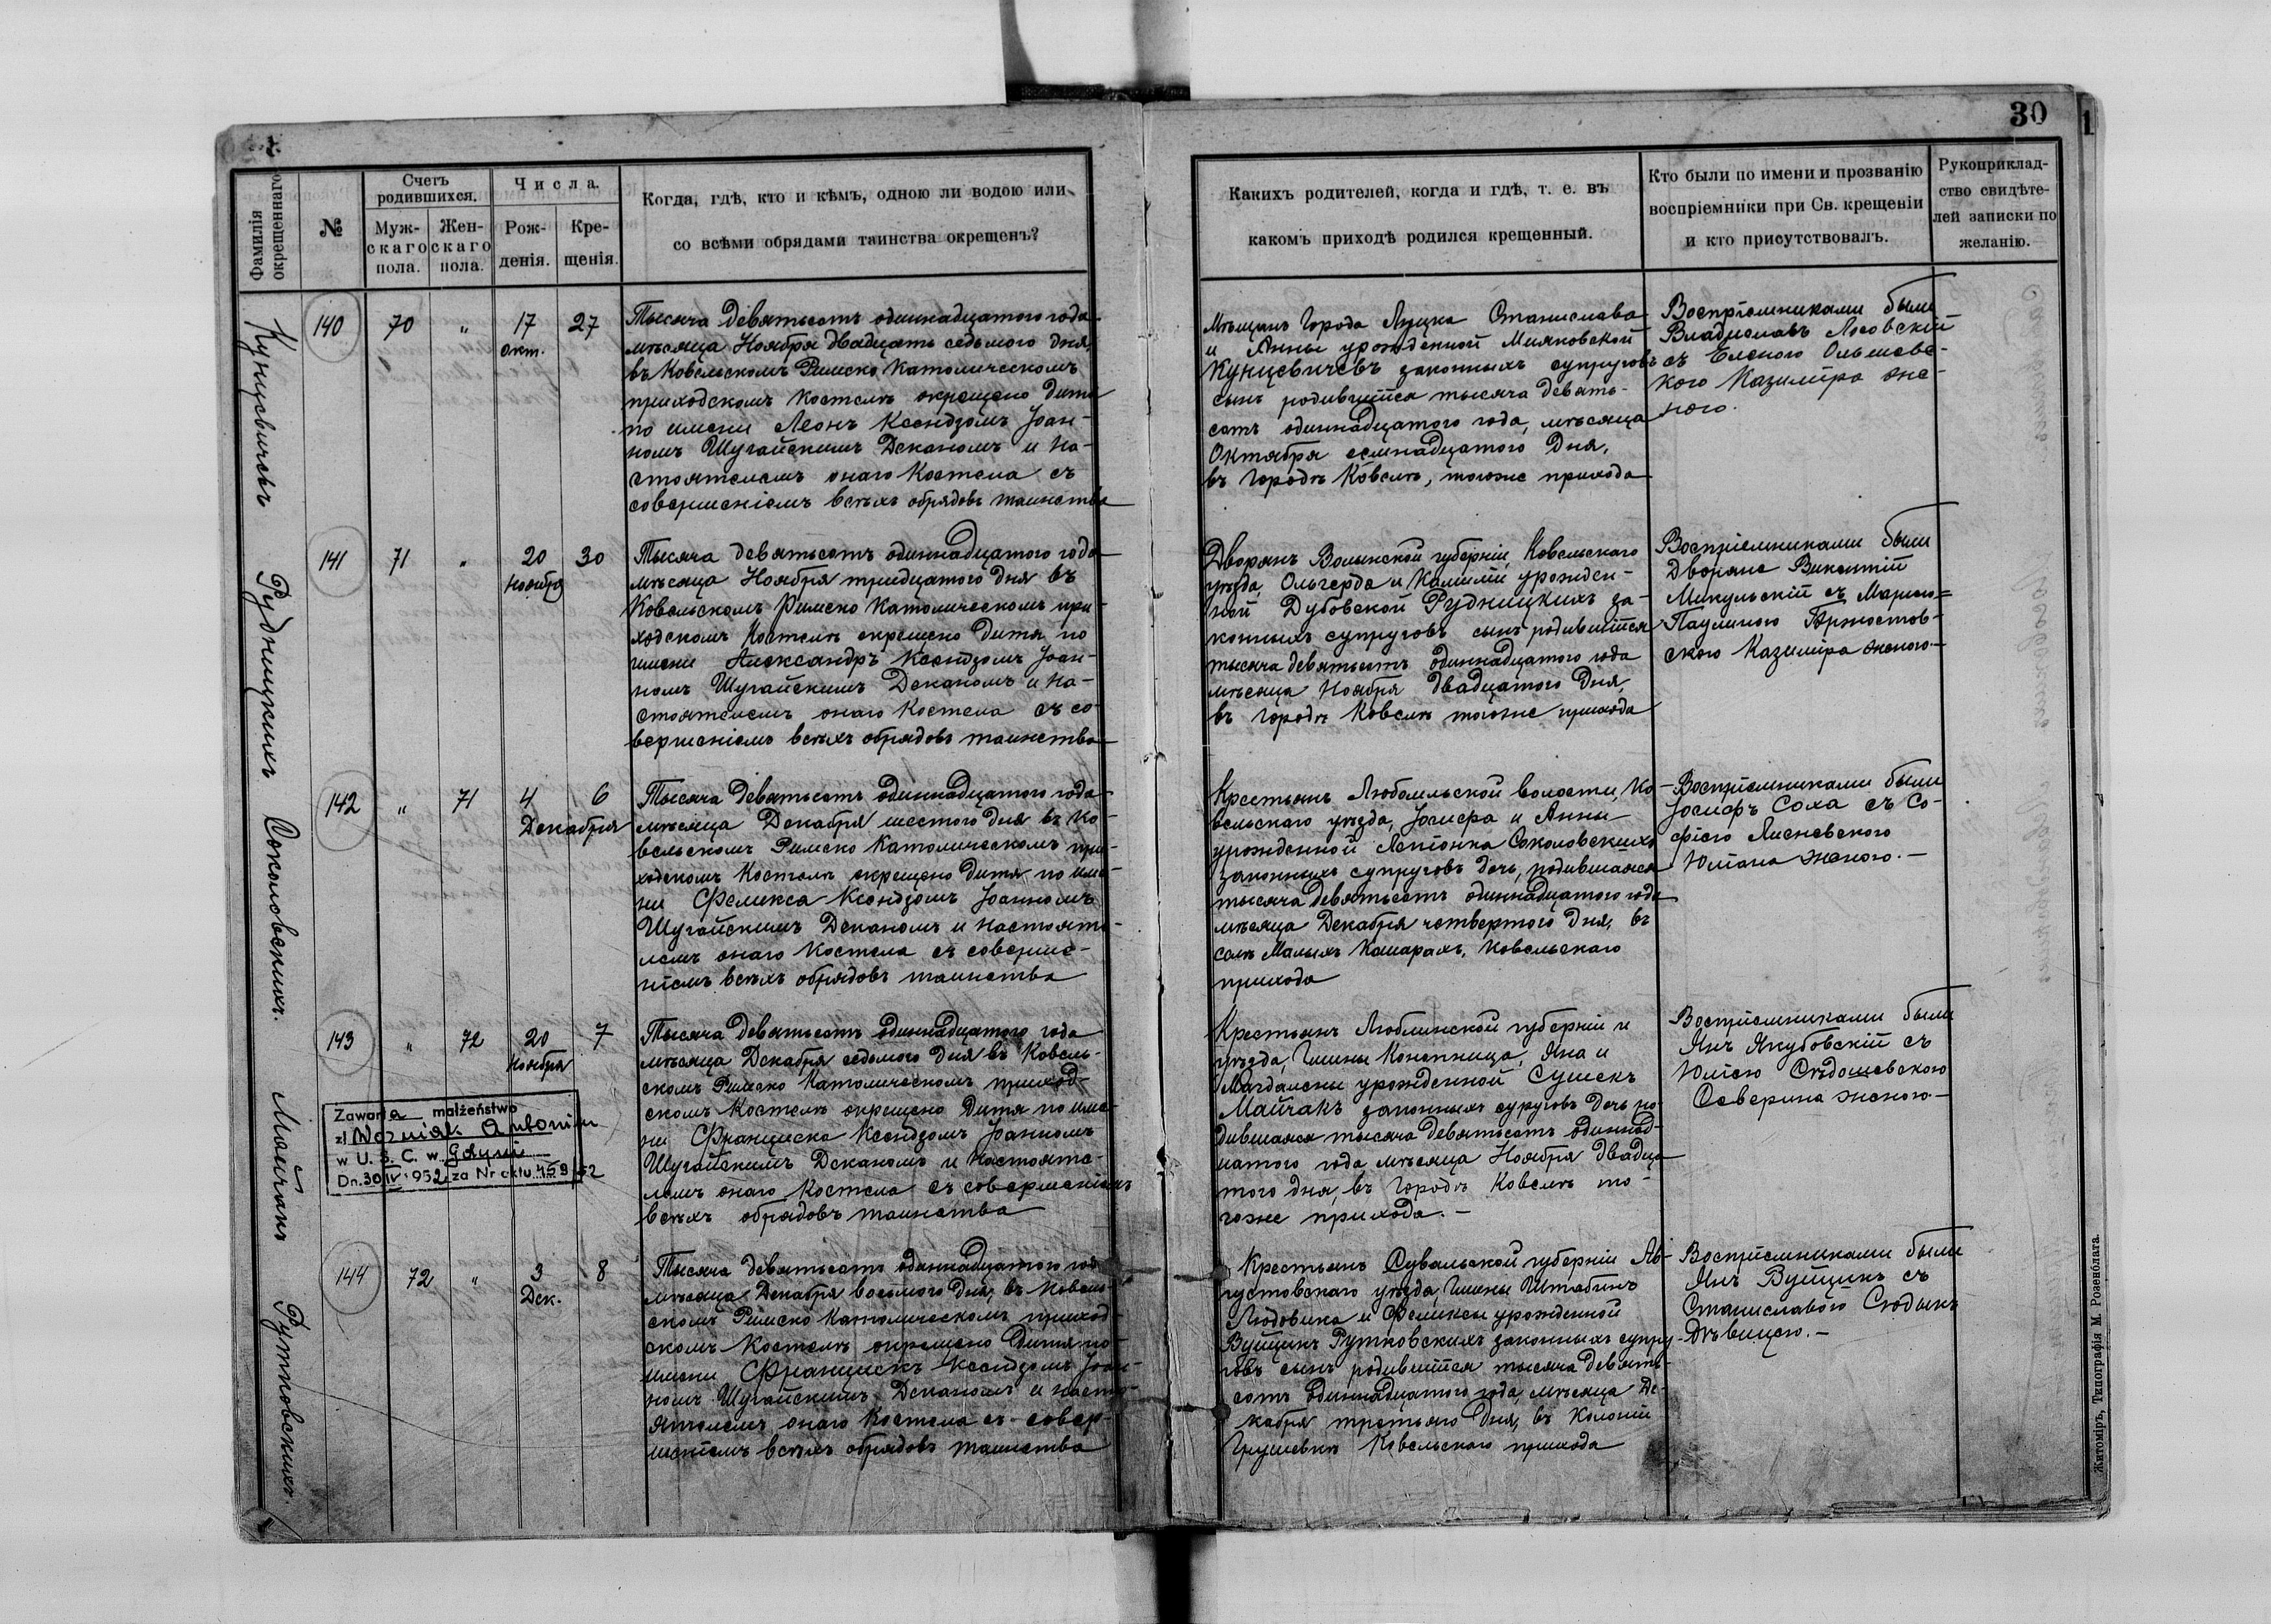 30
Фамилія окрещеннаго
№
Счетъ родившихся.
Муж-скаго пола.
Жен-скаго пола.
Числа.
Рож-денія.
Кре-щенія.
Когда, гдѣ, кто и кѣмъ, одною ли водою или
со всѣми обрядами таинства окрещенъ?
Какихъ родителей, когда и гдѣ, т. е. въ
какомъ приходѣ родился крещенный.
Кто были по имени и прозванію
воспріемники при Св. крещеніи
и кто присутствовалъ.
Рукоприклад-
ство свидѣте-
лей записки по
желанію.
Кунцевичевъ
140 70 " 17 окт. 27
Тысяча девятьсотъ одиннадцатого года
мѣсяца Ноября двадцать седьмого дня,
въ Ковельскомъ Римско Католическомъ
приходскомъ костелѣ окрещено дитя
по имени Леонъ Ксендзомъ Іоан-
номъ Шугайскимъ Деканомъ и На-
стоятелемъ онаго Костела съ
совершеніемъ всѣхъ обрядовъ таинства
Мѣщанъ Города Луцка Станислава
и Анны урожденной Мияковской
Кунцевичевъ законныхъ супруговъ
сынъ родившійся тысяча девять-
сотъ одиннадцатого года, мѣсяца
Октября семнадцатого Дня,
въ Городѣ Ковелѣ, тогоже прихода
Воспріемниками были
Владиславъ Лосовскій
съ Еленою Ольшевс-
кого Казиміра же-
ною.
Рудницкихъ
141 71 " 20 Ноября 30
Тысяча девятьсотъ одиннадцатого года
мѣсяца Ноября тридцатого Дня въ
Ковельскомъ Римско Католическомъ при-
ходскомъ Костелѣ окрещено Дитя по
имени Александръ Ксендзомъ Іоан-
номъ Шугайскимъ Деканомъ и На-
стоятелемъ онаго Костела съ со-
вершеніемъ всѣхъ обрядовъ таинства
Дворянъ Волынской губерніи, Ковельскаго
уѣзда, Ольгерда и Камиліи урожден-
ной Дубовской Рудницкихъ за-
конныхъ супруговъ сынъ родившійся
тысяча девятьсотъ одиннадцатого года
мѣсяца Ноября двадцатого Дня,
въ Городѣ Ковелѣ тогоже прихода
Воспріемниками были
Дворяне Викентій
Микульскій съ Маріею=
Паулиною Бржостов-
ского Казиміра женою.—
Соколовскихъ.
142 " 71 4 Декабря 6
Тысяча Девятьсотъ одиннадцатого года
мѣсяца Декабря шестого Дня въ Ко-
вельскомъ Римско Католическомъ при-
ходскомъ Костелѣ окрещено Дитя по име-
ни Феликса Ксендзомъ Іоанномъ
Шугайскимъ Деканомъ и Настояте-
лемъ онаго Костела съ соверше-
ніемъ всѣхъ обрядовъ таинства
Крестьянъ Любомльской волости, Ко-
вельскаго уѣзда, Іосифа и Анны
урожденной Лепіонка Соколовскихъ
законныхъ супруговъ дочь, родившаяся
тысяча девятьсотъ одиннадцатого года
мѣсяца Декабря четвертого Дня, въ
селѣ Малыхъ Кошарахъ, Ковельскаго
прихода
Воспріемниками были
Іосифъ Соха съ Со-
фіею Лисневского
Юліана женою.—
Майчакъ
143 " 72 20 Ноября 7
Тысяча девятьсотъ одиннадцатого года
мѣсяца Декабря седьмого Дня въ Ковель-
скомъ Римско Католическомъ приход-
скомъ Костелѣ окрещено Дитя по име-
ни Франциска Ксендзомъ Іоанномъ
Шугайскимъ Деканомъ и Настояте-
лемъ онаго Костела съ совершеніемъ
всѣхъ обрядовъ таинства
Zawarła małżeństwo
z Woźniak Antonim
w U. S. C. w Gdyni
Dn. 30 IV 1952 za Nr aktu 459/52
Крестьянъ Люблинской губерніи и
уѣзда, Гмины Конопница, Яна и
Магдалены урожденной Сушекъ
Майчакъ законныхъ супруговъ дочь ро-
дившаяся тысяча девятьсотъ одиннад-
цатого года мѣсяца Ноября двадца-
того дня, въ Городѣ Ковелѣ то-
гоже прихода.—
Воспріемниками были
Янъ Якубовскій съ
Юліею Сѣдошевскою
Северина женою.—
Рутковскихъ.
144 72 " 3 Дек. 8
Тысяча девятьсотъ одиннадцатого года
мѣсяца Декабря восьмого Дня, въ Ковель-
скомъ Римско Католическомъ приход-
скомъ Костелѣ окрещено Дитя по
имени Францискъ Ксендзомъ Іоан-
номъ Шугайскимъ Деканомъ и насто-
ятелемъ онаго Костела съ совер-
шеніемъ всѣхъ обрядовъ таинства
Крестьянъ Сувальской губерніи Ав-
густовскаго уѣзда, Гмины Штабинъ
Людовика и Феликсы урожденной
Вуйцикъ Рутковскихъ законныхъ супру-
говъ сынъ родившійся тысяча девять-
сотъ одиннадцатого года, мѣсяца Де-
кабря третьяго Дня, въ Колоніи
Грушевкѣ Ковельскаго прихода
Воспріемниками были
Янъ Вуйцикъ съ
Станиславою Сюдыкъ
Дѣвицею.—
Житоміръ, Типографія М. Розенблата.